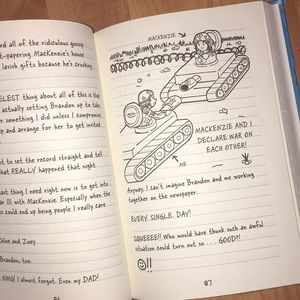 rd all of the ridiculous gossip
t-papering MacKenzie's house
lavish gifts because he's crushing
ELEST thing about all of this is that
actually setting Brandon up to take
r something I did unless I compromise
up and arrange for her to get invited
to set the record straight and tell
hat REALLY happened that night.
ant thing I need right now is to get into
III with MacKenzie. Especially when the
could end up being people I really care
Chloe and Zoey.
Brandon, too.
OMG! I almost forgot. Even my DAD!
86
MACKENZIE
MACKENZIE AND I
DECLARE WAR ON
EACH OTHER!
ME
Anyway, I can't imagine Brandon and me working
together on the newspaper.
EVERY. SINGLE. DAY!
SQUEEEE!! Who would have thunk such an awful
situation could turn out so . . . GOOD?!
!!
87